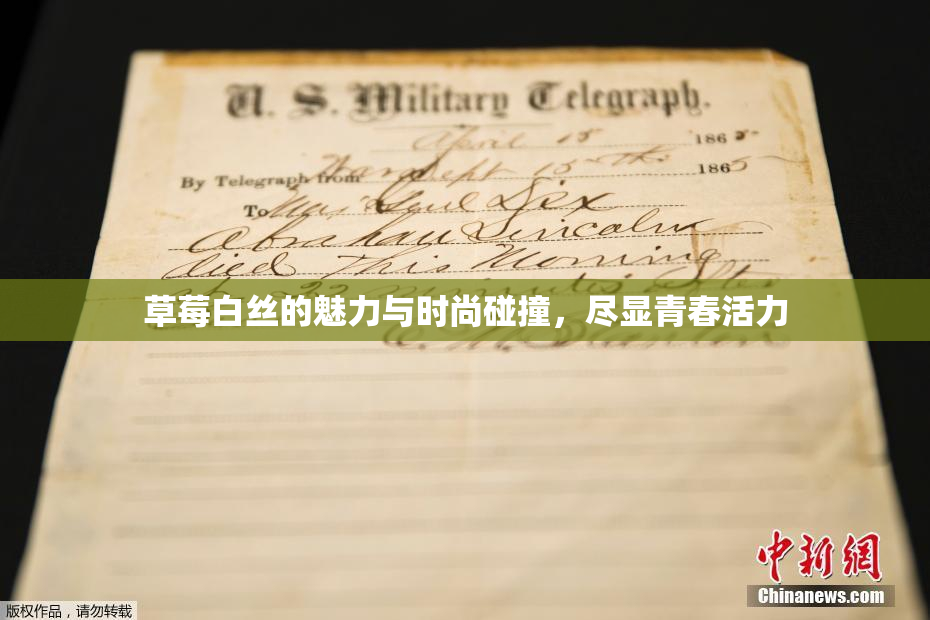 U. S. Military Telegraph.
April 15 1865
By Telegraph from War Dept 15th 1865
To Maj Genl Dix
Abraham Lincoln
died This Morning
22 minutes after
草莓白丝的魅力与时尚碰撞，尽显青春活力
E. M. Stanton
中新網
Chinanews.com
版权作品，请勿转载